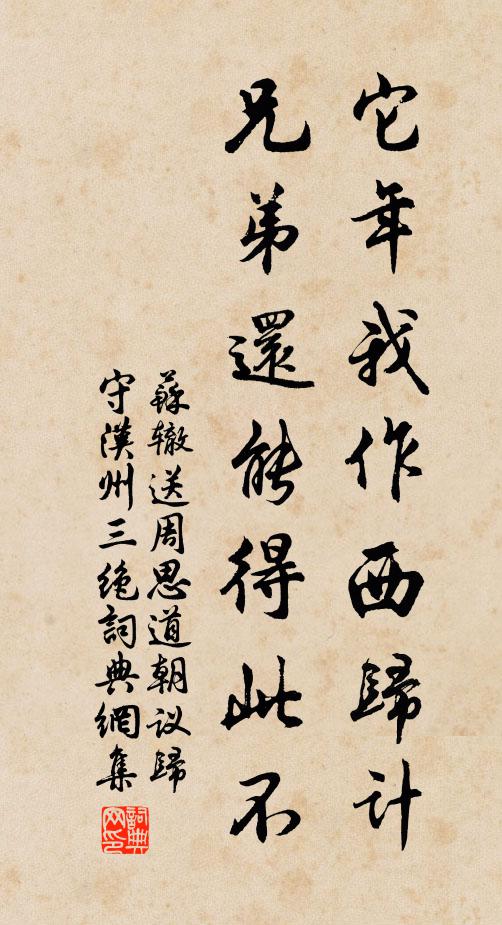 它年我作西歸計
兄弟還能得此不
蘇辙送周思道朝议歸
守漢州三绝詞典網集
詞典网印